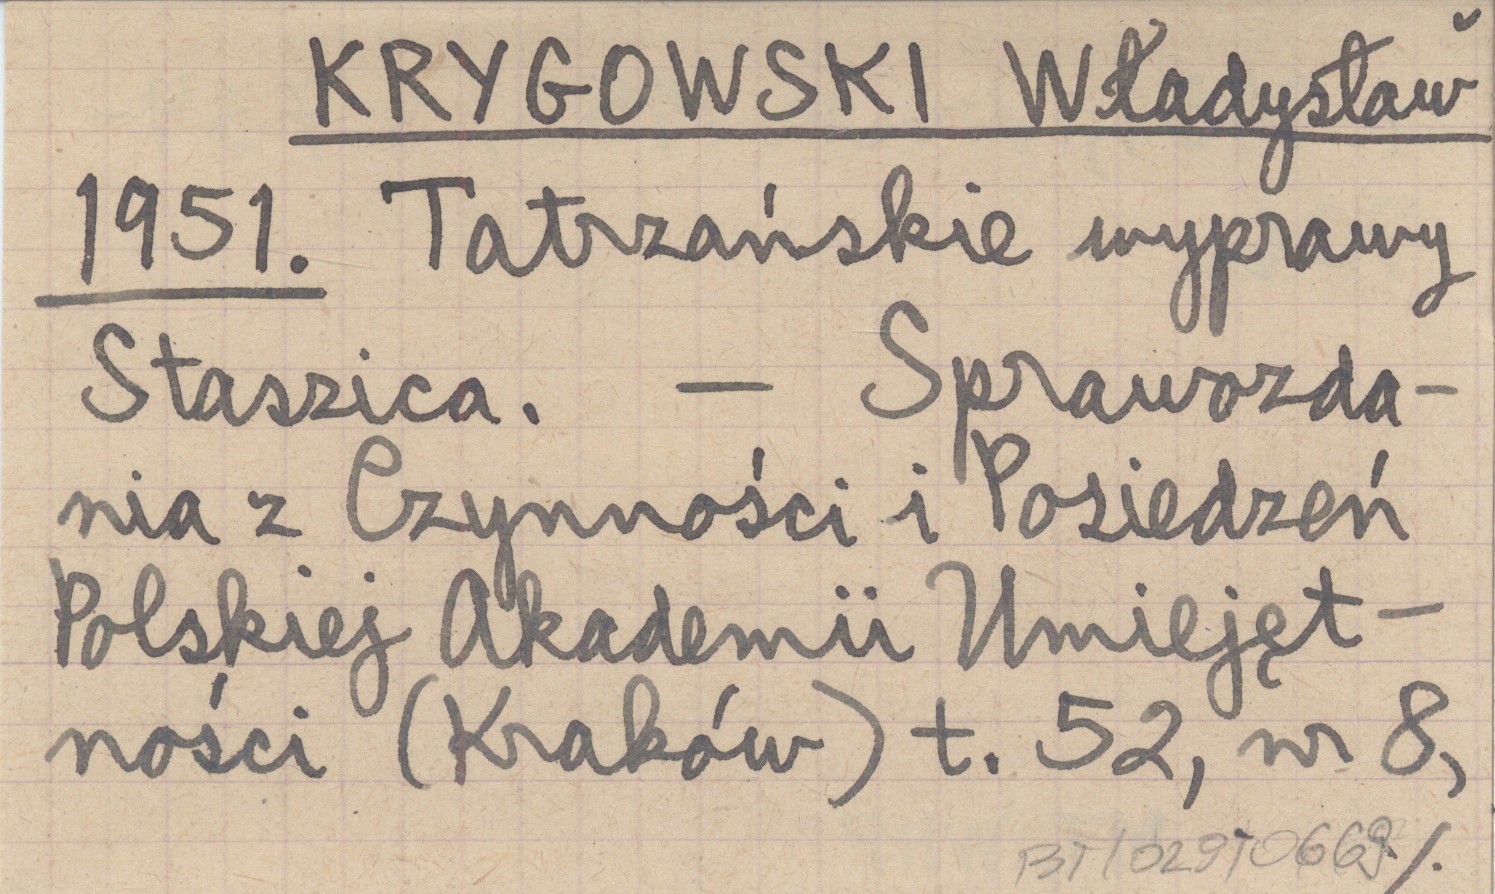 KRYGOWSKI Władysław
1951. Tatrzańskie wyprawy
Staszica. — Sprawozda-
nia z Czynności i Posiedzeń
Polskiej Akademii Umiejęt-
ności (Kraków) t. 52, nr 8,
./.